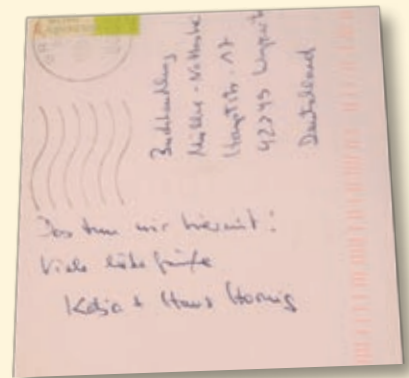 Buchhandlung
Müller-
Hauptstr. 17
42
Deutschland
Das tun wir hiermit!
Viele liebe Grüße
Katja + Hans Hornig